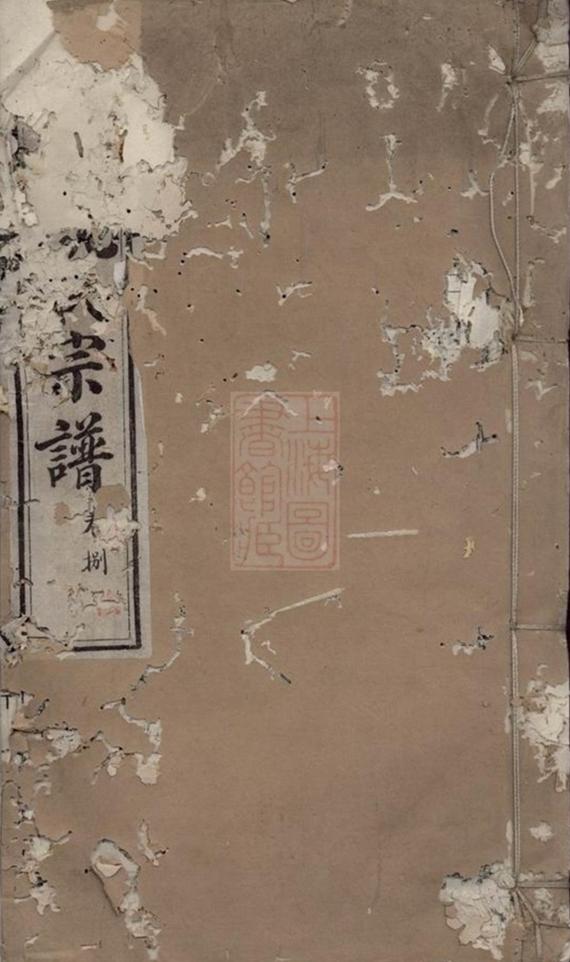 宗譜
卷捌
上海圖
書館藏